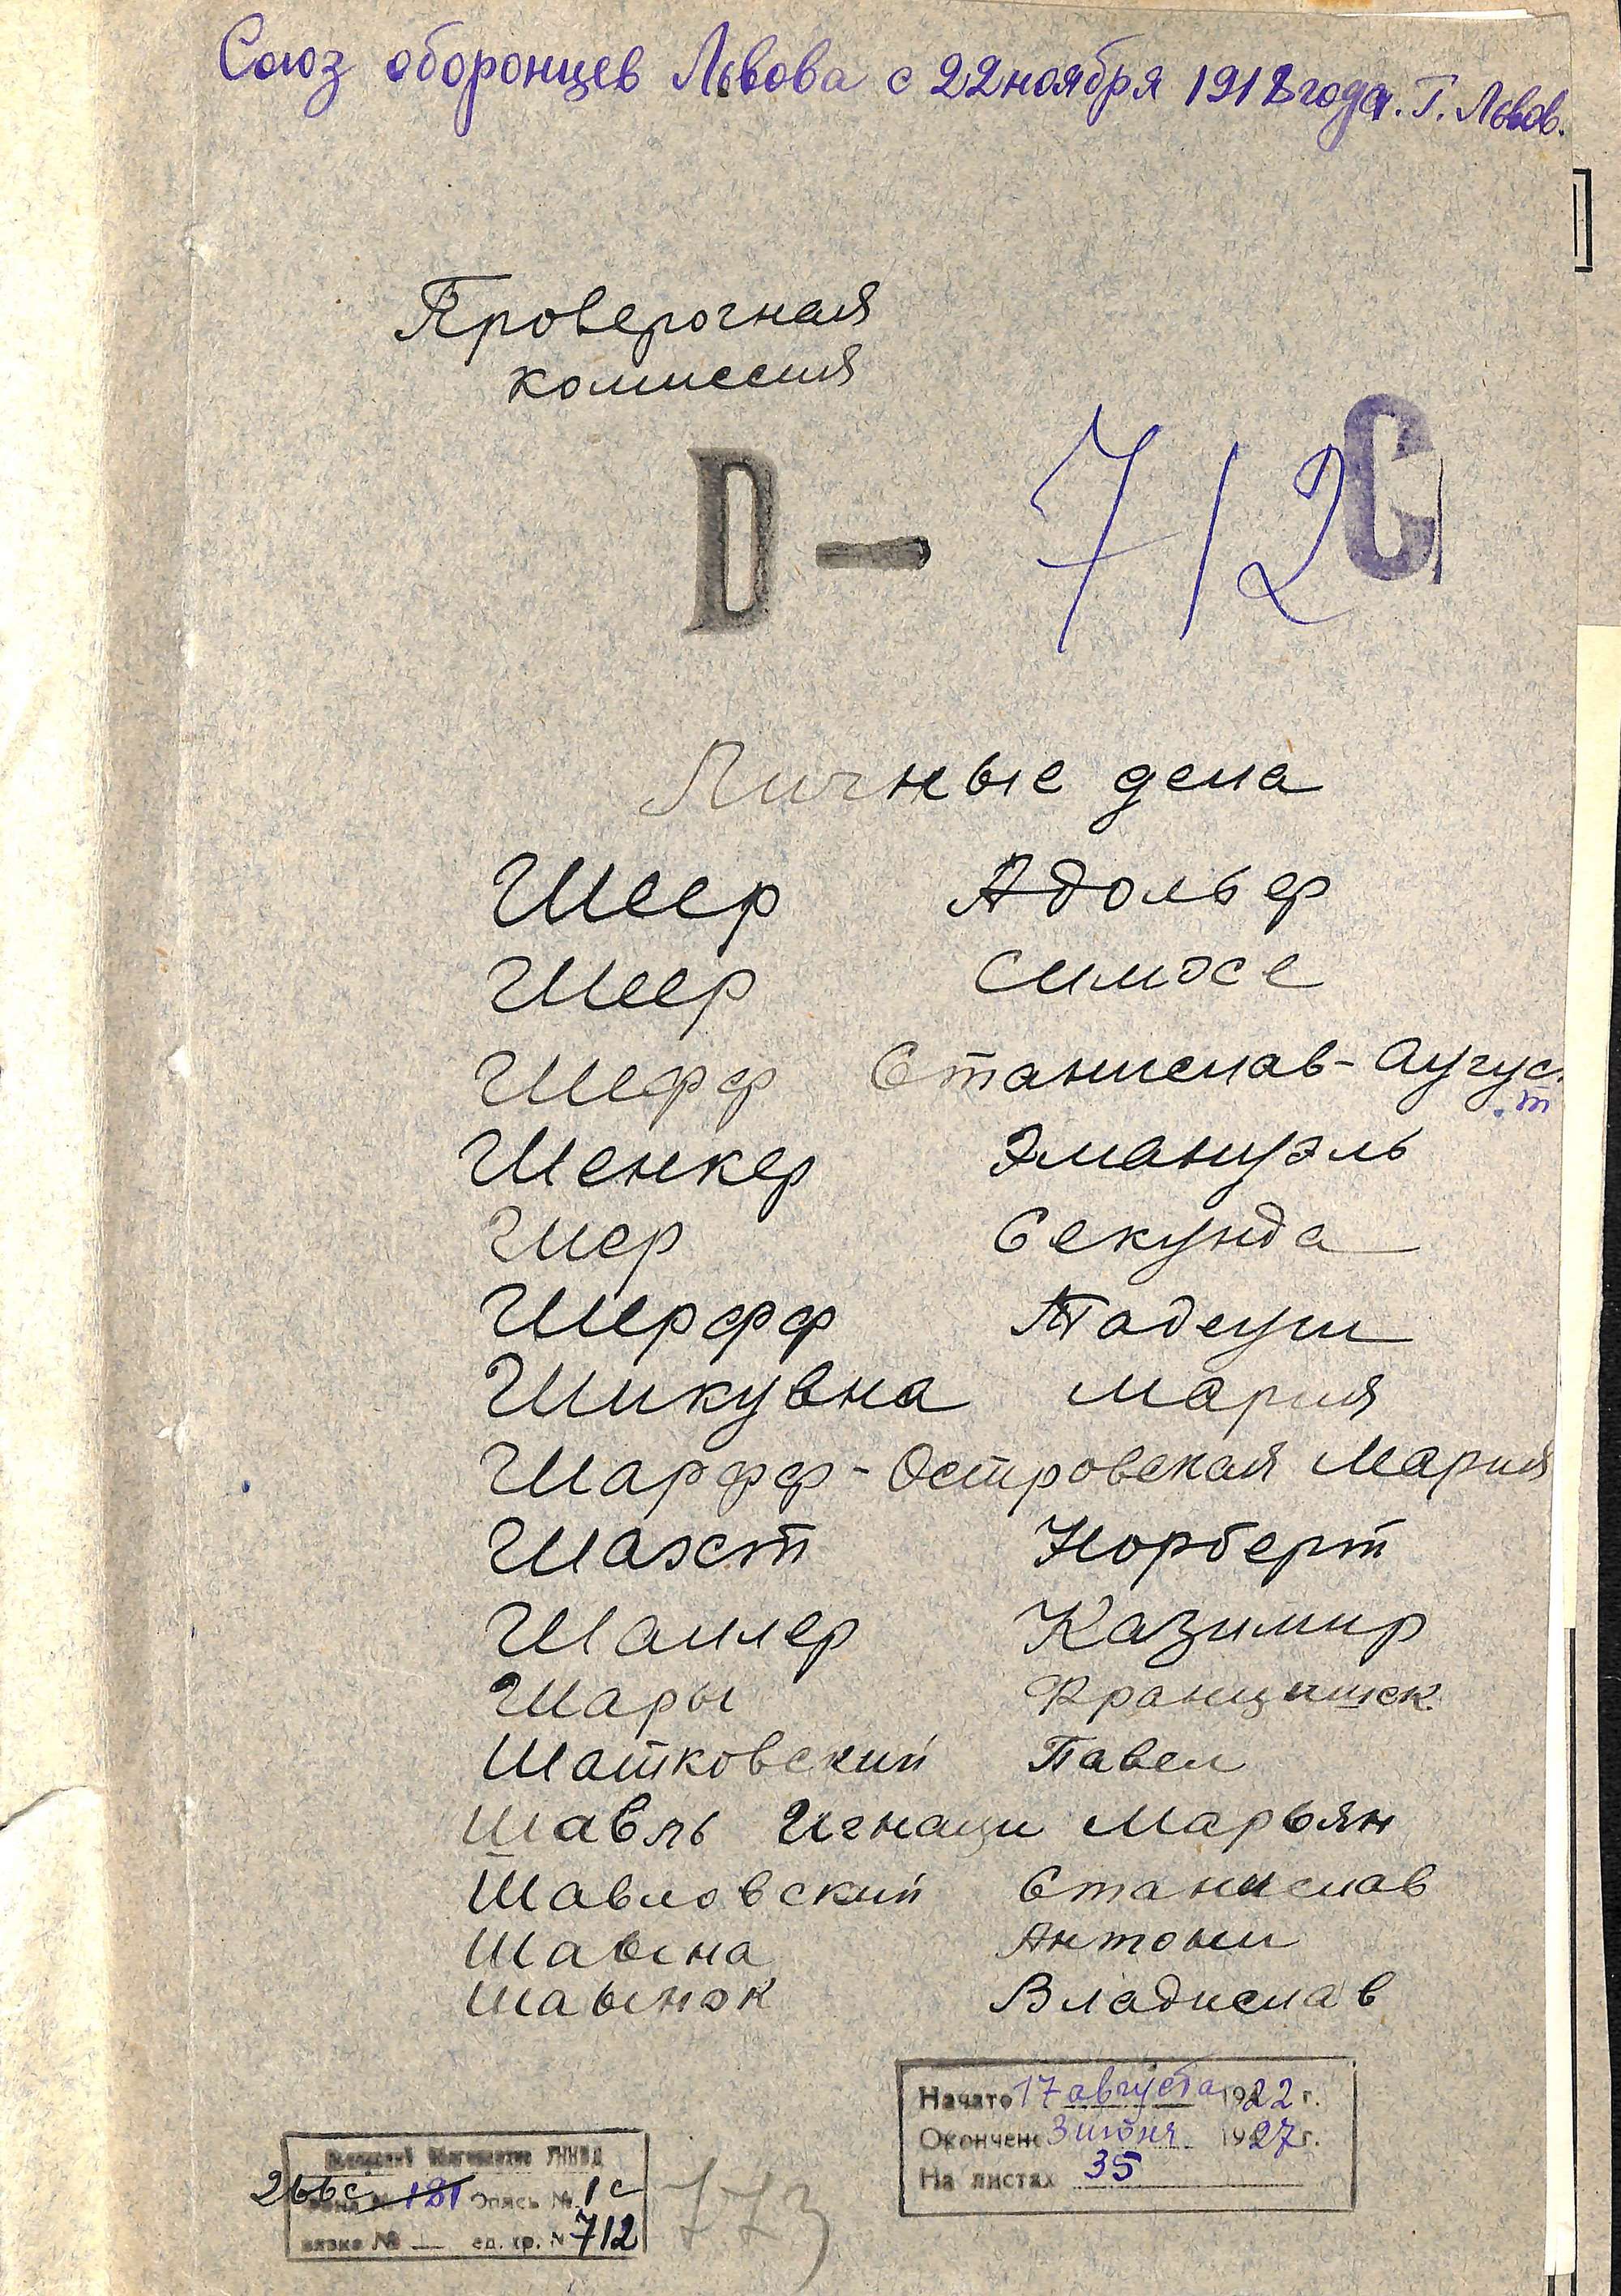 Союз оборонцев Львова с 22 ноября 1918 года. Г. Львов.
Проверочная
комиссия
D — 712 С
Личные дела
Шеер Адольф
Шеер Симхе
Шефф Станислав-Аугуст
Шенкер Эмануэль
Шер Секунда
Шерфф Тадеуш
Шикувна Мария
Шарфф-Островская Мария
Шахт Норберт
Шаллер Казимир
Шары Францишек
Шатковский Павел
Шавль Игнаци Марьян
Шавловский Станислав
Шавына Антони
Шавынэк Владислав
Начато 17 августа 1922 г.
Окончено 3 июня 1927 г.
На листах 35
УНКВД
266с 181 Опись № 1с
вязка № — ед. хр. № 712
773